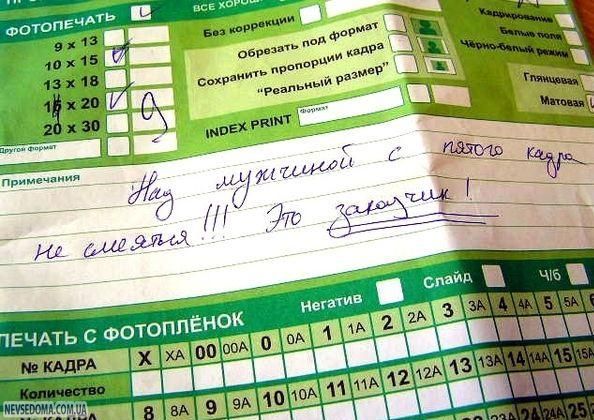 ФОТОПЕЧАТЬ
ВСЕ ХОРОШ
Без коррекции
Кадрирование
9 x 13
Обрезать под формат
Белые поля
10 x 15
Сохранить пропорции кадра
Чёрно-белый режим
13 x 18
"Реальный размер"
Глянцевая
x 20
9
Матовая
20 x 30
INDEX PRINT
Формат
Другой формат
Примечания
Над мужчиной с пятого кадра
не смеяться!!! Это заказчик!
Негатив
Слайд
Ч/б
ПЕЧАТЬ С ФОТОПЛЁНОК
№ КАДРА X XA 00 00A 0 0A 1 1A 2 2A 3 3A 4 4A 5 5A 6
Количество
8 8A 9 9A 10 10A 11 11A 12 12A 13 13A 14 14A 15 15A
25
NEVSEDOMA.COM.UA